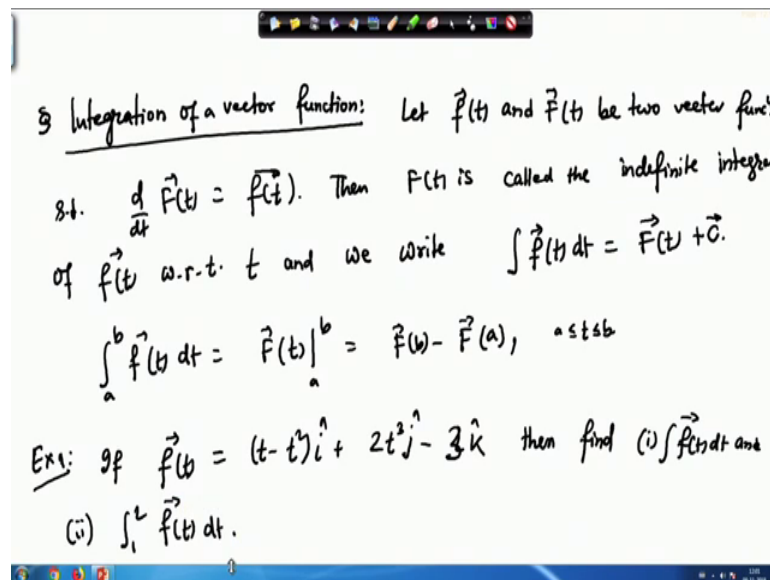 § Integration of a vector function: Let f⃗(t) and F⃗(t) be two vector func
s.t. d/dt F⃗(t) = f⃗(t). Then F(t) is called the indefinite integra
of f⃗(t) w.r.t. t and we write ∫ f⃗(t) dt = F⃗(t) + c⃗.
∫_a^b f⃗(t) dt = F⃗(t)|_a^b = F⃗(b) - F⃗(a), a ≤ t ≤ b
Ex 1: If f⃗(t) = (t - t²) î + 2t³ ĵ - 3 k̂ then find (i) ∫ f⃗(t) dt and
(ii) ∫_1^2 f⃗(t) dt.